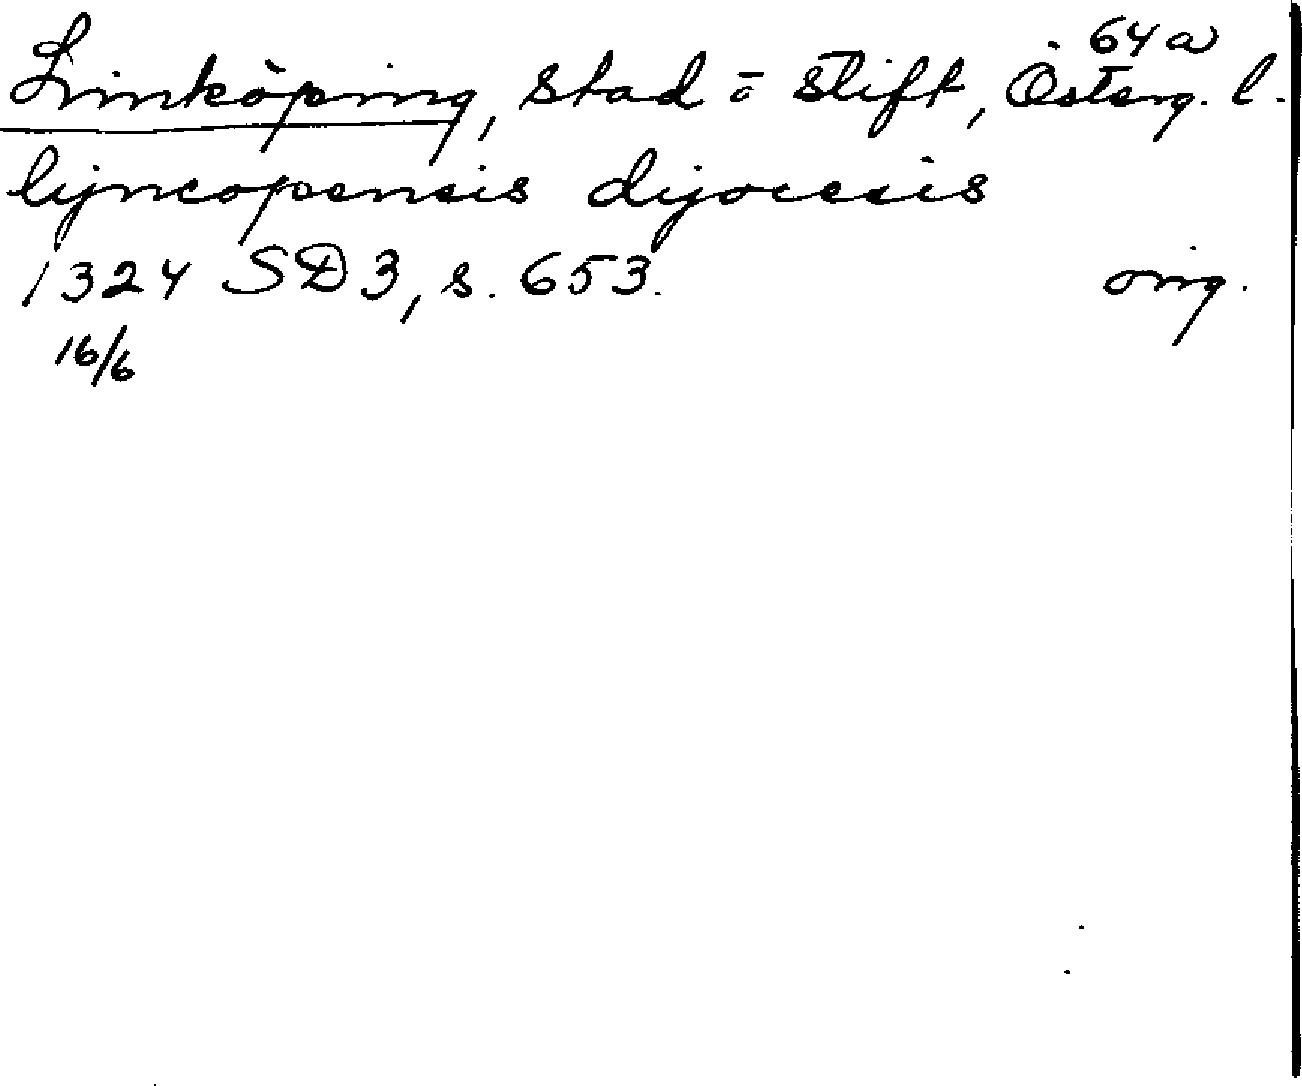 64a
Linköping, stad o stift, Österg. l.
lijncopensis dijocesis
1324 SD3, s. 653. orig.
16/6